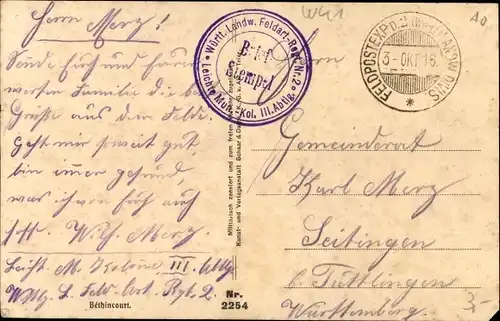 Herrn Merz!
Sende Euch und Euren
werten Familie die besten
Grüße aus dem Felde.
Geht mir soweit gut,
bin immer gesund,
was ich von Euch auch
hoffe. Wilh. Merz.
Leicht. M. Kolonne III. Abtlg
Wttbg. L. Feld. Art. Rgt. 2.
Béthincourt.
Nr.
2254
Württ. Landw. Feldart.-Regt. Nr. 2
Leichte Mun.-Kol. III. Abtlg.
Brief
Stempel
Militärisch zensiert und zum freien
Kunst- und Verlagsanstalt Schaar & Dathe
WK1
AO
FELDPOSTEXPD.
3.-OKT 16.
LANDW. DIVIS.
Gemeinderat
Karl Merz
Seitingen
b. Tuttlingen
Württemberg.
3,-